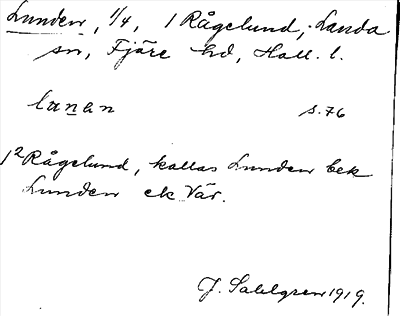 Lunden, 1/4, 1 Rågelund, Landa
sn, Fjäre hd, Hall. l.
lanan s. 76
1² Rågelund, kallas Lunden bek
Lunden ek Vär.
J. Sahlgren 1919.